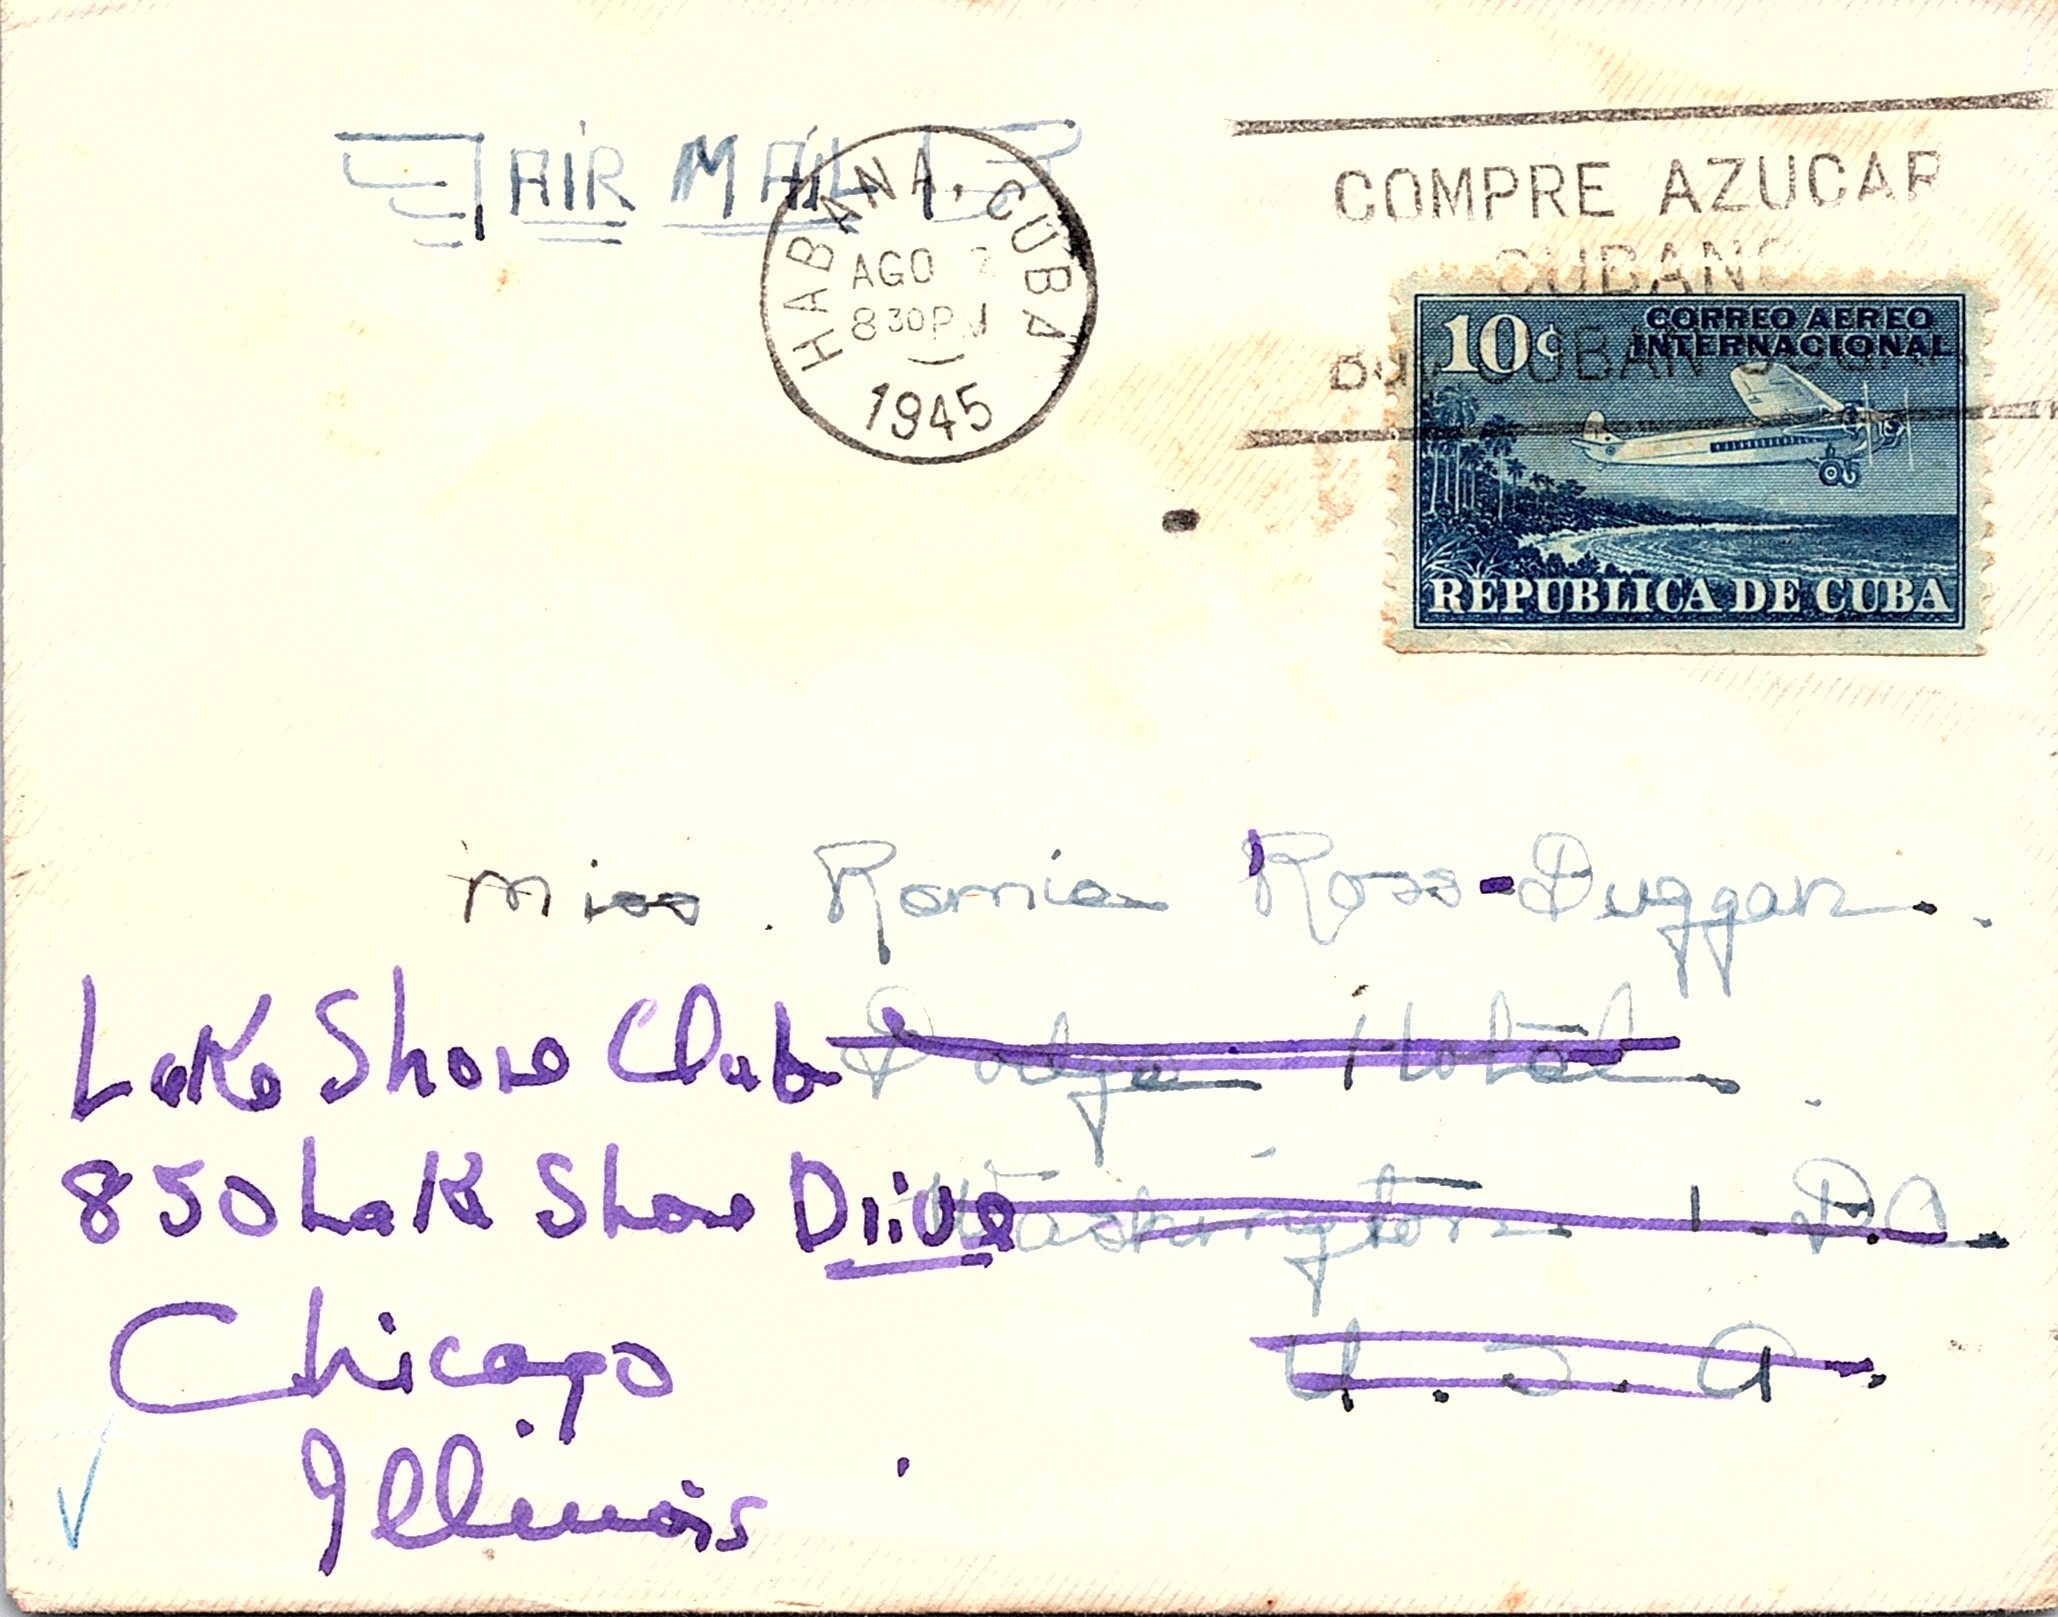 AIR MAIL
HABANA, CUBA
AGO 2
8 30 PM
1945
COMPRE AZUCAR
CUBANO
BUY CUBAN SUGAR
10¢ CORREO AEREO
INTERNACIONAL
REPUBLICA DE CUBA
Miss. Romie Ross-Duggan.
Lake Shore Club Dodge Hotel.
850 Lake Shore Drive Washington 1. D.C.
Chicago U.S.A.
Illinois